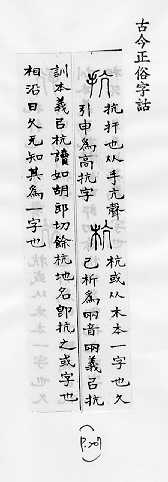 古今正俗字詁
抗 抗扞也从手亢聲 杭 杭或从木本一字也久
引申爲高抗字 已析爲兩音兩義以抗
訓本義以杭讀如胡郎切餘杭地名卽抗之或字也
相沿日久无知其爲一字也
(P.20)